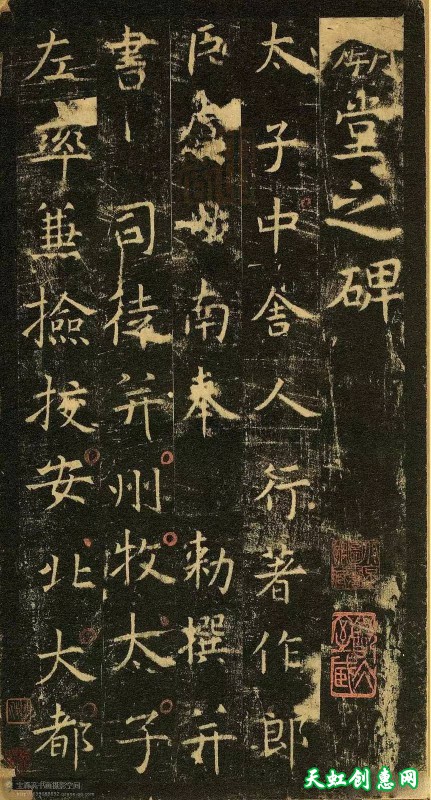 堂之碑
太子中舍人行著作郎
臣虞世南奉 勅撰并
書 司徒并州牧太子
左率兼撿挍安北大都
天虹创惠网